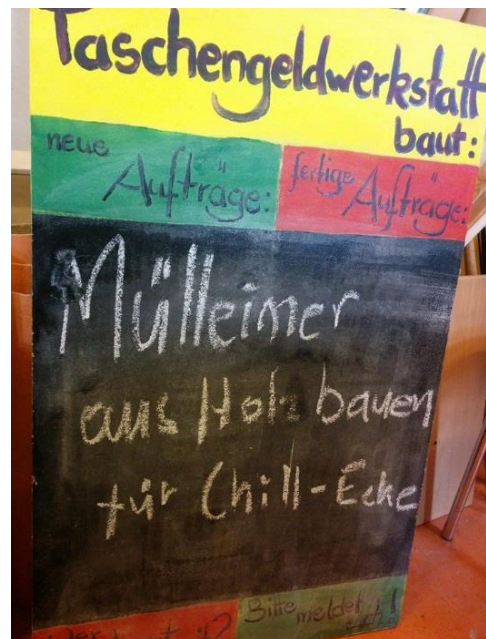 Taschengeldwerkstatt
baut:
neue Aufträge:
fertige Aufträge:
Mülleimer
aus Holz bauen
für Chill-Ecke
Bitte meldet